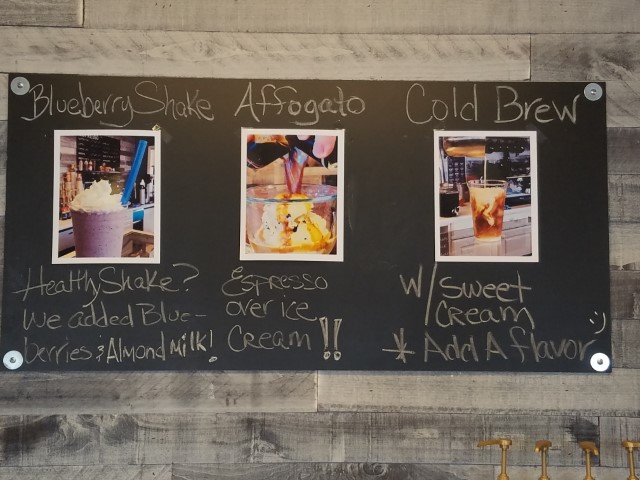 Blueberry Shake
Healthy Shake?
We added Blue-
berries & Almond Milk!
Affogato
Espresso
over ice
Cream!!
Cold Brew
W/ sweet
Cream
* Add A flavor
:)